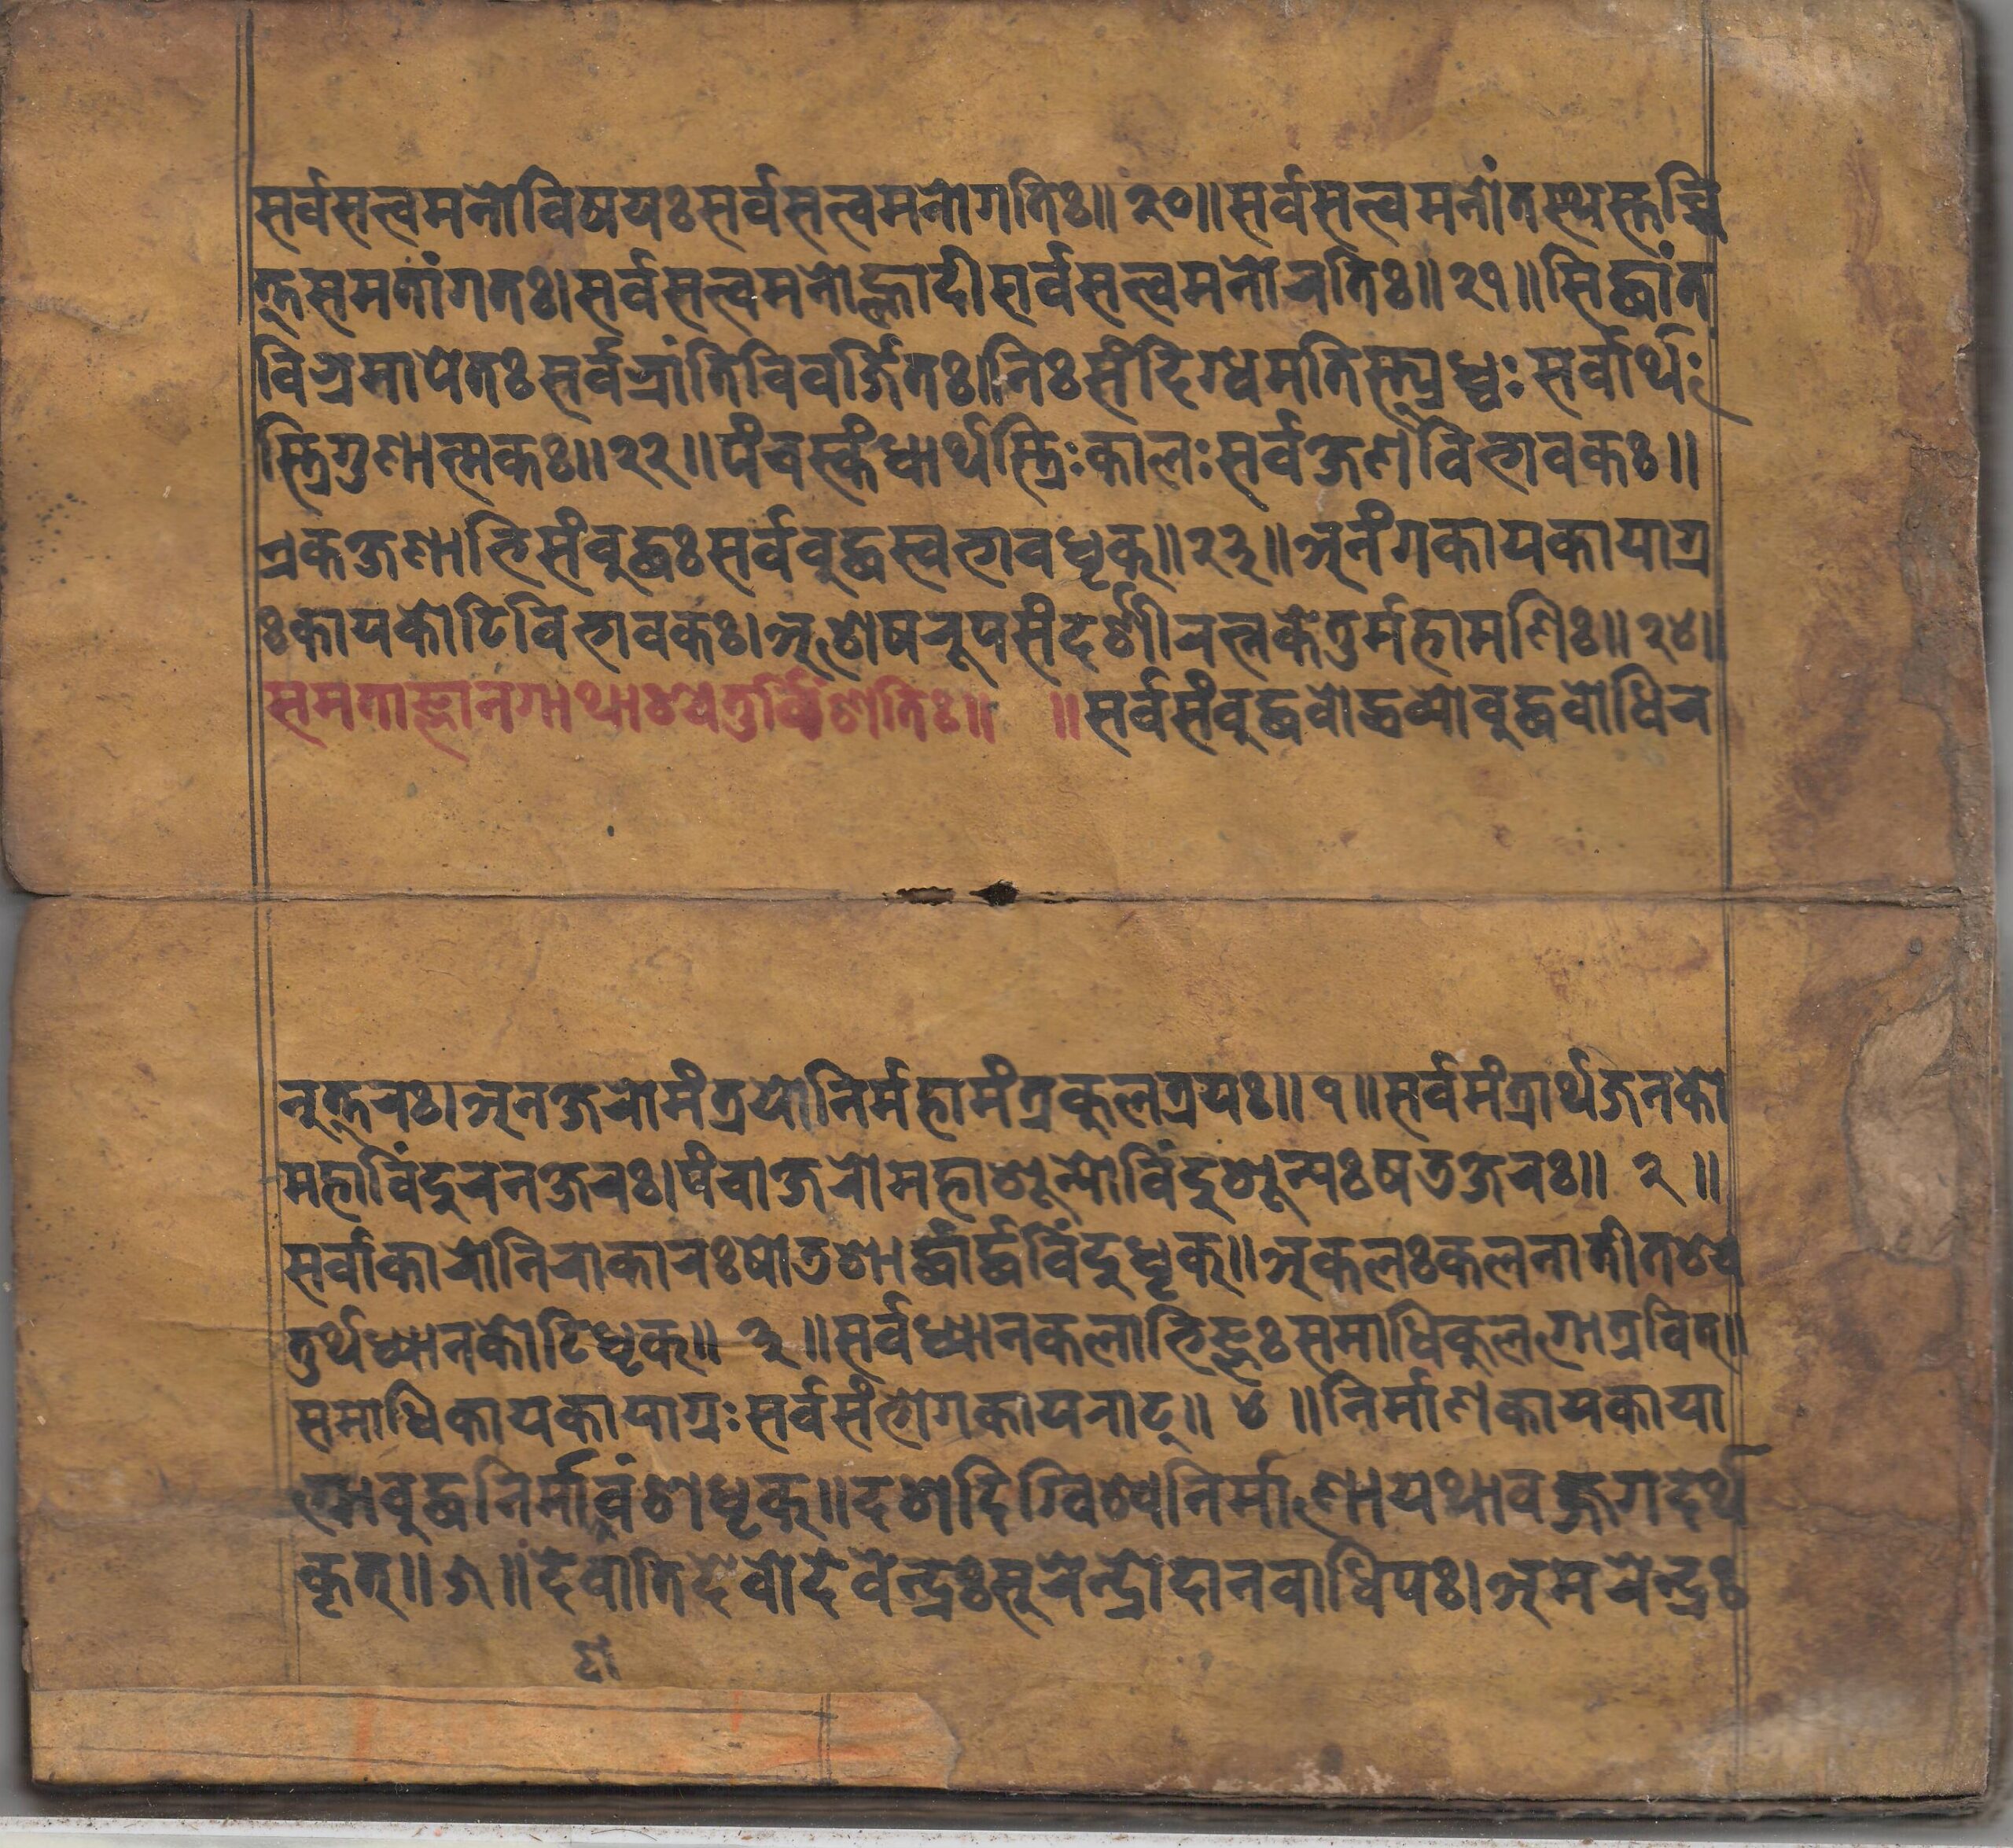 सर्वसत्त्वमनोविषयः सर्वसत्त्वमनोगतिः॥ २०॥ सर्वसत्त्वमनोंतस्थस्तच्चि
त्तसमतांगतः। सर्वसत्त्वमनोह्लादी सर्वसत्त्वमनोरतिः॥ २१॥ सिद्धांत
विभ्रमापेतः सर्वभ्रांतिविवर्जितः। निःसंदिग्धमतिस्त्र्यध्वः सर्वार्थः
स्त्रिगुणात्मकः॥ २२॥ पंचस्कंधार्थस्त्रिःकालः सर्वक्षणविभावकः॥
एकक्षणाभिसंबुद्धः सर्वबुद्धस्वभावधृक्॥ २३॥ अनंगकायकायाग्र
ः कायकोटिविभावकः। अशेषरूपसंदर्शी रत्नकेतुर्महामणिः॥ २४॥
समताज्ञानगाथाश्चतुर्विंशतिः॥ ॥ सर्वसंबुद्धबोद्धव्यो बुद्धबोधिर
नुत्तरः। अनक्षरो मंत्रयोनिर्महामंत्रकुलत्रयः॥ १॥ सर्वमंत्रार्थजनको
महाविंदुरनक्षरः। पंचाक्षरो महाशून्यो विंदुशून्यः षतक्षरः॥ २॥
सर्वाकारो निराकारः षोतशार्द्धार्द्धविंदुधृक्॥ अकलः कलनातीतश्च
तुर्थध्यानकोटिधृक्॥ ३॥ सर्वध्यानकलाभिज्ञः समाधिकुलगोत्रवित्॥
समाधिकायकायाग्रः सर्वसंभोगकायराट्॥ ४॥ निर्माणकायकाया
ग्र्यबुद्धनिर्मावंशधृक्॥ दशदिग्विश्वनिर्माणो यथावज्जगदर्थ
कृत्॥ ५॥ देवातिदेवो देवेन्द्रः सुरेन्द्रो दानवाधिपः। अमरेन्द्रः
ण